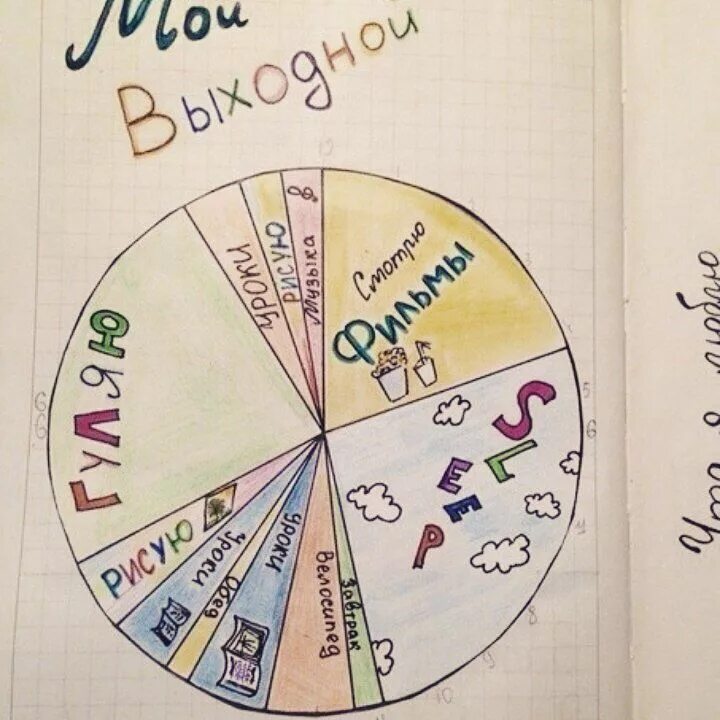 Мой
Выходной
Смотрю
Фильмы
SLEEP
Завтрак
Велосипед
уроки
Обед
уроки
Рисую
Гуляю
уроки
Рисую
Музыка
5
6
8
9
10
6
6